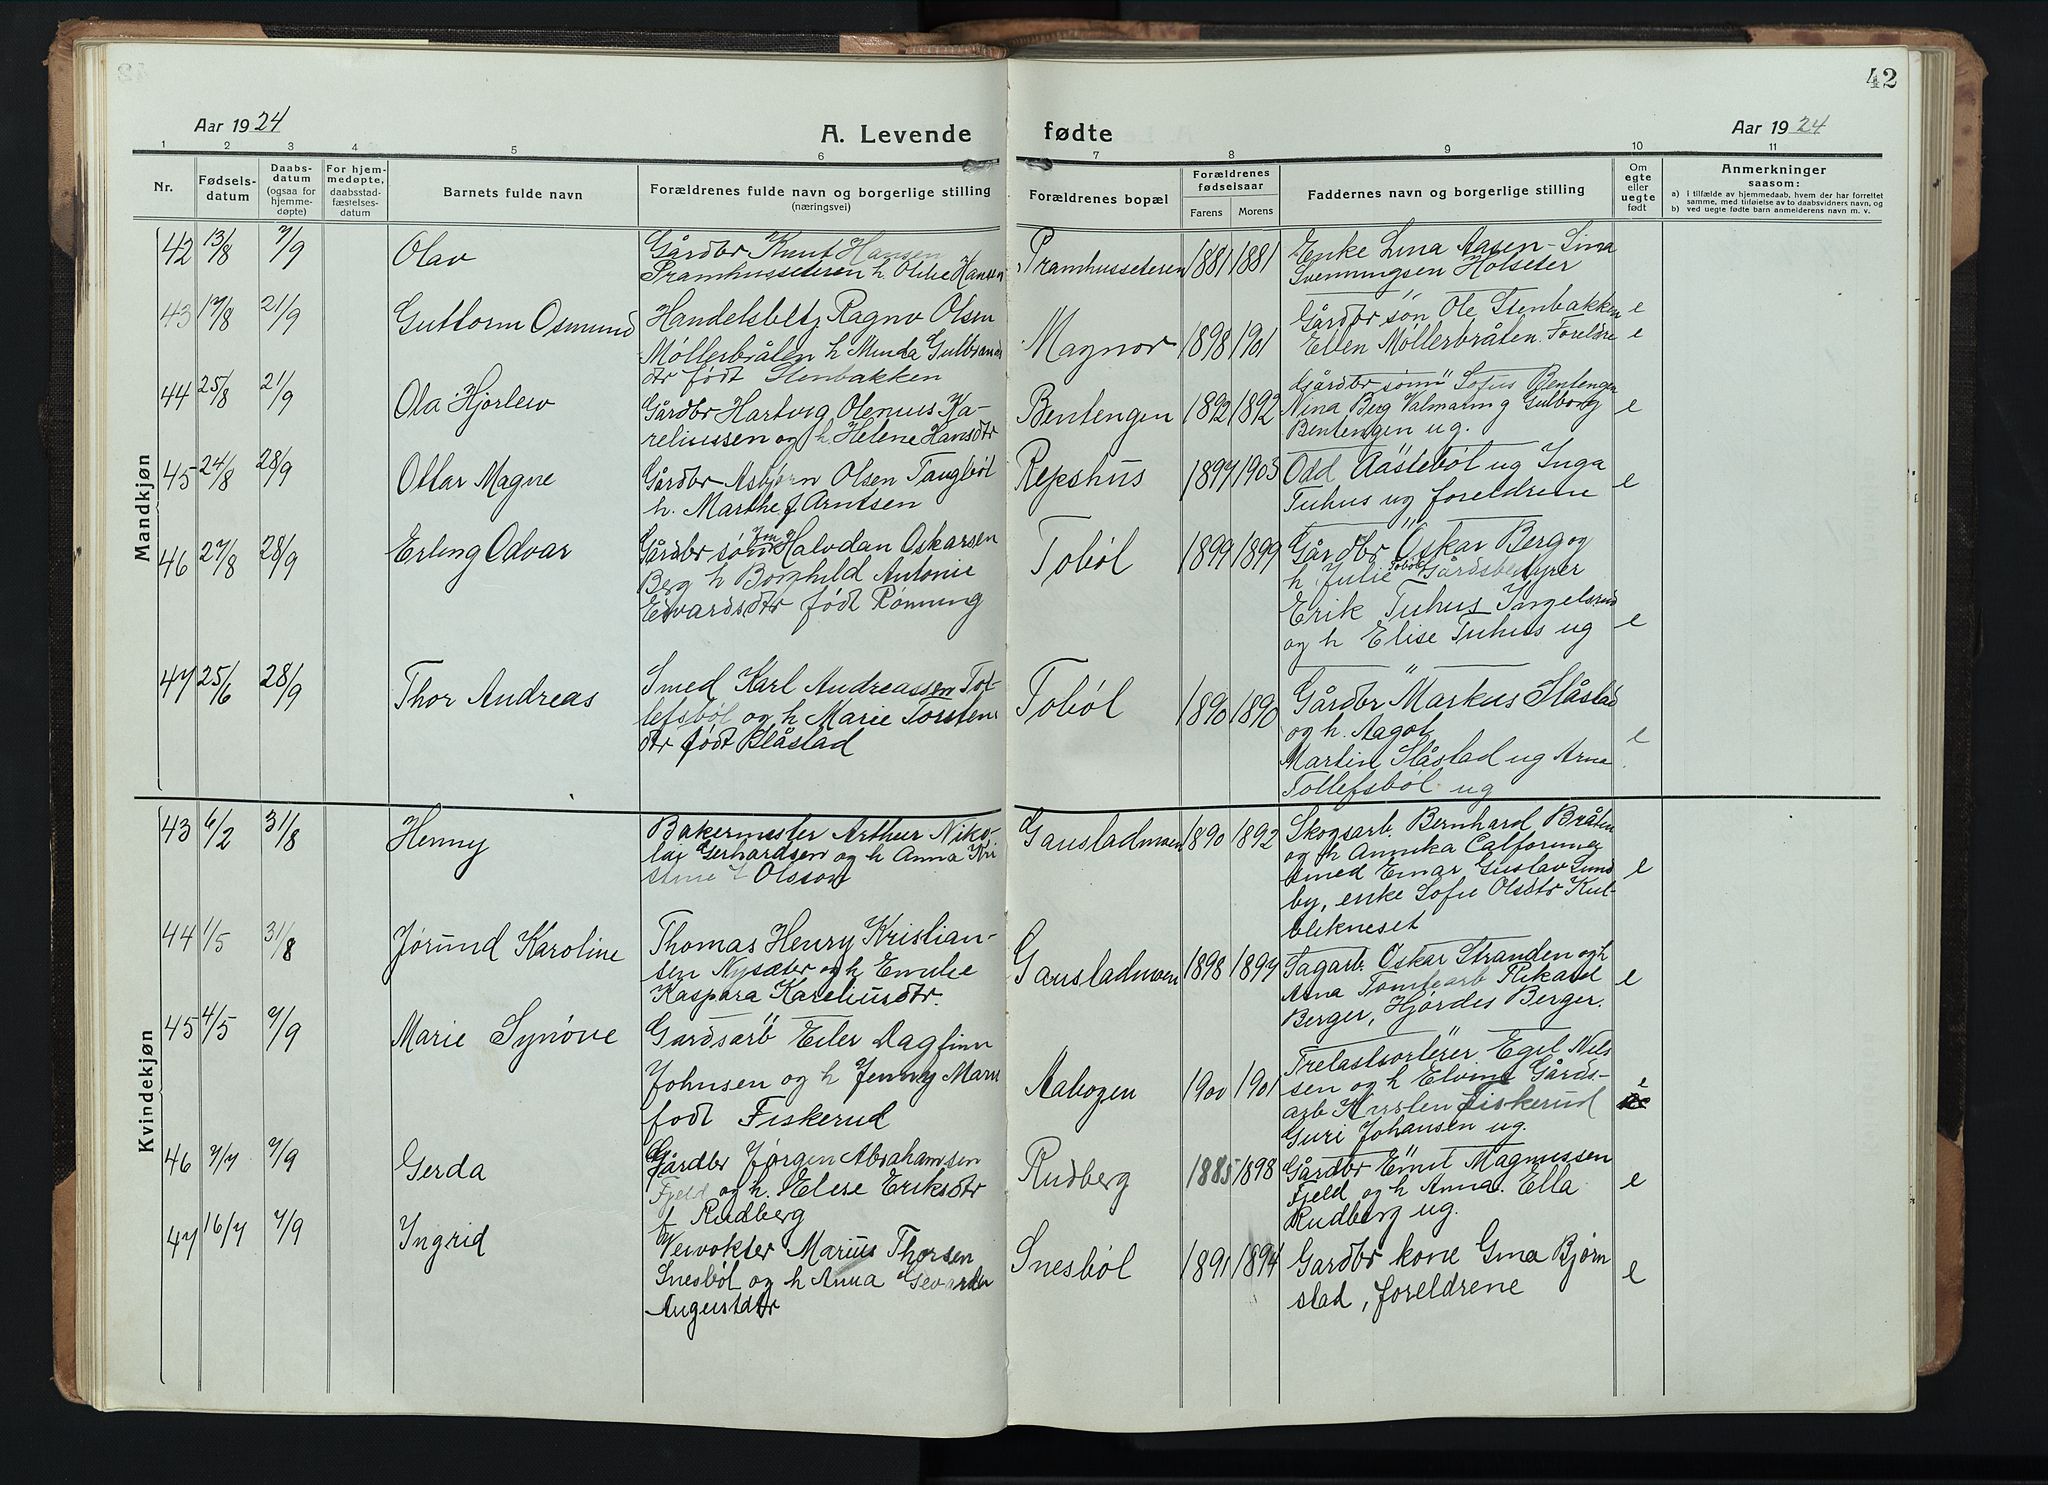 42
Aar 1924
A. Levende fødte
Aar 1924
1 2 3 4 5 6 7 8 9 10 11
Nr.
Fødsels-
datum
Daabs-
datum
(ogsaa for
hjemme-
døpte)
For hjem-
medøpte,
daabsstad-
fæstelses-
datum
Barnets fulde navn
Forældrenes fulde navn og borgerlige stilling
(næringsvei)
Forældrenes bopæl
Forældrenes
fødselsaar
Farens Morens
Faddernes navn og borgerlige stilling
Om
egte
eller
uegte
født
Anmerkninger
saasom:
a) i tilfælde av hjemmedaab, hvem der har forrettet
samme, med tilføielse av to daabsvidners navn, og
b) ved uegte fødte barn anmelderens navn m. v.
Mandkjøn
42 13/8 7/9 Olav
Gårdbr Knut Hansen
Pramhusseteren h. Otilie Hansen
Pramhusseteren 1881 1881
Enke Lina Aasen - Lina
Svenningsen Holseter
43 17/8 21/9 Guttorm Osmund
Handelsbetj Ragnv Olsen
Møllerbråten h Minda Gulbrands
dtr født Stenbakken
Magnor 1898 1901
Gårdbr søn Ole Stenbakken e
Ellen Møllerbråten. Foreldre e
44 25/8 21/9 Ola Hjorlew
Gårdbr Hartvig Olenius Ka-
reliussen og h. Helene Hansdtr
Bentengen 1892 1892
Gårdbr sønn Sofus Bentengen
Nina Berg Valmann g Gulborg e
Bentengen ug.
45 24/8 28/9 Ottar Magne
Gårdbr Asbjørn Olsen Tangbøl
h. Marthe f Arntsen
Repshus 1897 1903
Odd Aastebøl ug Inga
Tuhus ug foreldrene e
46 27/8 28/9 Erling Odvar
Gårdbr søn Halvdan Oskarsen
Berg h Borghild Antonie
Edvardsdtr født Rønning
Tobøl 1899 1899
Gårdbr Oskar Berg og
h Julie Tobøl Gårdsbestyrer
Erik Tuhus Ingelsrud
og h Elise Tuhus ug e
47 25/6 28/9 Thor Andreas
Smed Karl Andreassen Tol-
lefsbøl og h Marie Torstens
dtr født Slåstad
Tobøl 1890 1890
Gårdbr Markus Slåstad
og h. Aagot
Martin Slåstad ug Arna e
Tollefsbøl ug
Kvindekjøn
43 6/2 31/8 Henny
Bakermester Arthur Niko-
lai Gerhardsen og h Anna Kri
stine f Olsson
Gaustadmoen 1890 1892
Skogsarb. Bernhard Bråten
og h Annika
smed Einar Gustav Lund e
by, enke Sofie Olsdtr Kul-
blikneset
44 1/5 31/8 Jørund Karoline
Thomas Henry Kristian-
sen Nysæter og h Emilie
Kaspara Kareliusdtr.
Gaustadmoen 1898 1897
Sagarb. Oskar Stranden og h
Arna Tomtearb Rikard e
Berger, Hjørdes Berger.
45 4/5 7/9 Marie Synøve
Gardsarb Eiler Dagfinn
Johnsen og h Jenny Marie
født Fiskerud
Aabogen 1900 1901
Trelastsorterer Egil Nils
sen og h Elvine Gårds-
arb Karsten Fiskerud e
Guri Johansen ug.
46 7/7 7/9 Gerda
Gårdbr Jørgen Abrahamsen
Fjeld og h. Elise Eriksdtr
f Rudberg
Rudberg 1885 1898
Gårdbr Emil Magnussen
Fjeld og h Anna. Ella e
Rudberg ug.
47 16/7 7/9 Ingrid
Veivokter Marius Thorsen
Snesbøl og h Anna
Augustdtr
Snesbøl 1891 1894
Gardbr kone Gina Bjørn
stad, foreldrene e